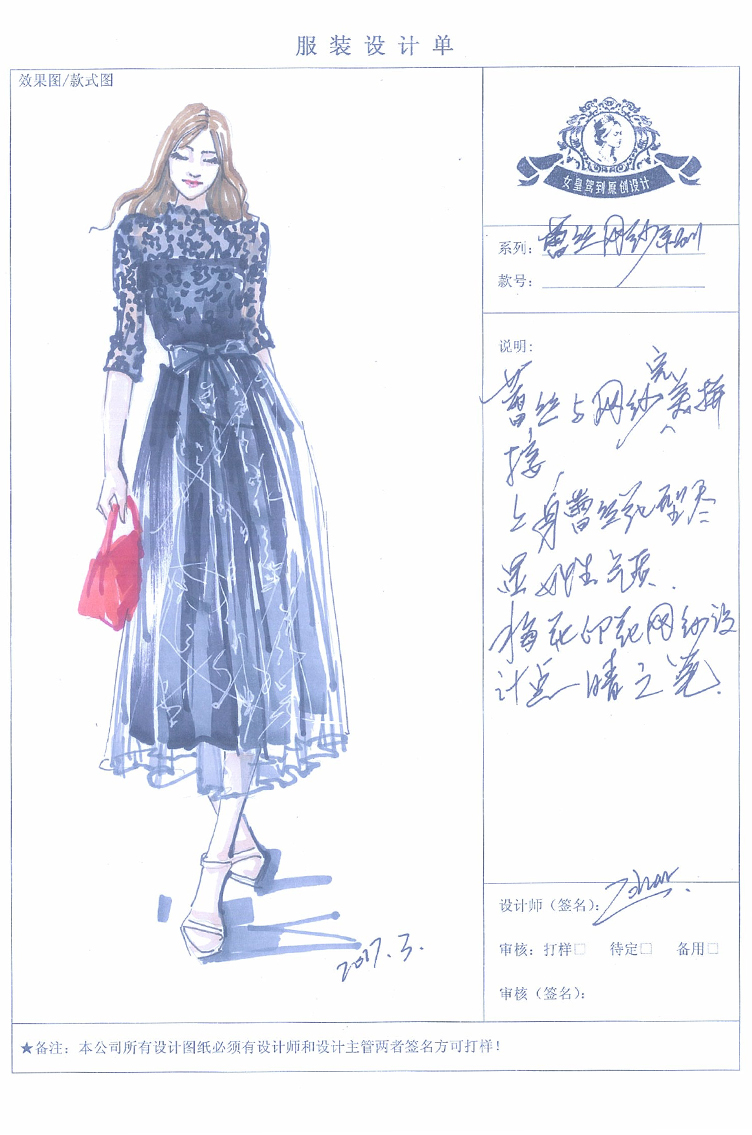 服装设计单
效果图/款式图
女皇驾到原创设计
系列：蕾丝网纱系列
款号：
说明：
蕾丝与网纱完美拼
接，
上身蕾丝花型尽
显女性气质.
梅花印花网纱设
计点睛之笔.
2017.3.
设计师（签名）：
审核：打样□ 待定□ 备用□
审核（签名）：
★备注：本公司所有设计图纸必须有设计师和设计主管两者签名方可打样！